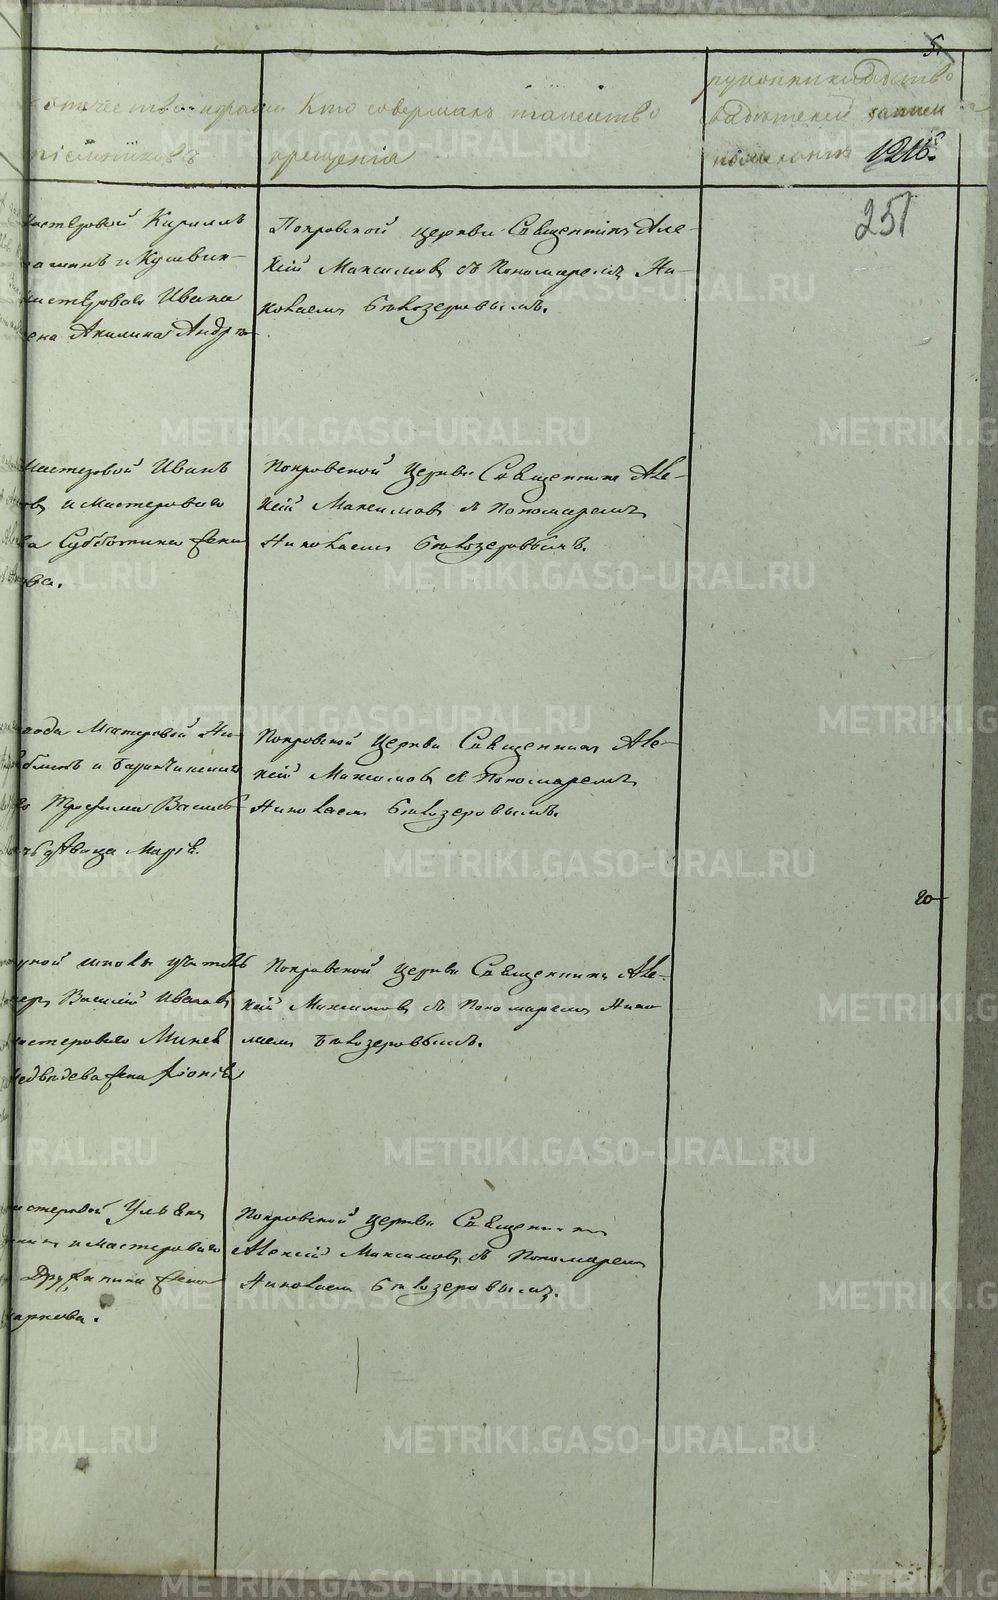 5.
Кто совершалъ таинство
крещенія
рукоприкладство
свидѣтелей записи
по желанію
1216.
251
мастеровой Кириллъ
и Кушвин-
мастероваго Ивана
жена Акилина Андре-
Покровской церкви Священникъ Але-
ксій Максимовъ съ Пономаремъ Ни-
колаемъ Бѣлозеровымъ.
Мастеровой Иванъ
въ и Мастероваго
ва Субботина жена
ева.
Покровской Церкви Священникъ Але-
ксій Максимовъ съ Пономаремъ
Николаемъ Бѣлозеровымъ.
завода Мастеровой Ни-
и Баранчинскаго
Трофима Василь-
дѣвица Марія.
Покровской Церкви Священникъ Але-
ксій Максимовъ съ Пономаремъ
Николаемъ Бѣлозеровымъ.
20
школы учитель
Василій Ивановъ
мастероваго Михея
Медвѣдева жена Ѳіонія
Покровской Церкви Священникъ Але-
ксій Максимовъ съ Пономаремъ Нико-
лаемъ Бѣлозеровымъ.
мастеровой Ульянъ
и Мастероваго
Дружинина жена
Карпова.
Покровской Церкви Священникъ
Алексій Максимовъ съ Пономаремъ
Николаемъ Бѣлозеровымъ.
METRIKI.GASO-URAL.RU